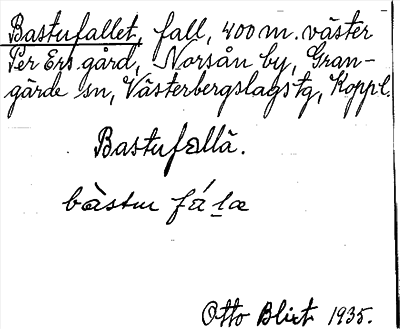 Bastufallet, fall, 400 m. väster
Per Ers gård, Norsån by, Gran-
gärde sn, Västerbergslags tg, Koppl.
Bastufallä.
bàstuu fá la
Otto Blixt 1935.